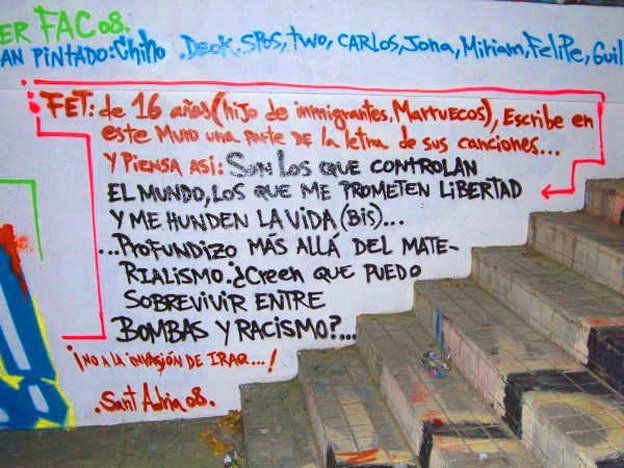 ER FAC 08.
AN PINTADO: Chino .Deok, SPOS, TWO, CARLOS, Jona, Miriam, Felipe, Guil
FET: de 16 años (hijo de inmigrantes, Marruecos), Escribe en
este Muro una parte de la letra de sus canciones...
Y PIENSA ASÍ: SON LOS QUE CONTROLAN
EL MUNDO, LOS QUE ME PROMETEN LIBERTAD
Y ME HUNDEN LA VIDA (BIS)...
...PROFUNDIZO MÁS ALLÁ DEL MATE-
RIALISMO. ¿Creen QUE PUEDO
SOBREVIVIR ENTRE
BOMBAS Y RACISMO?...
¡NO A LA INVASIÓN DE IRAQ...!
.Sant Adria 08.